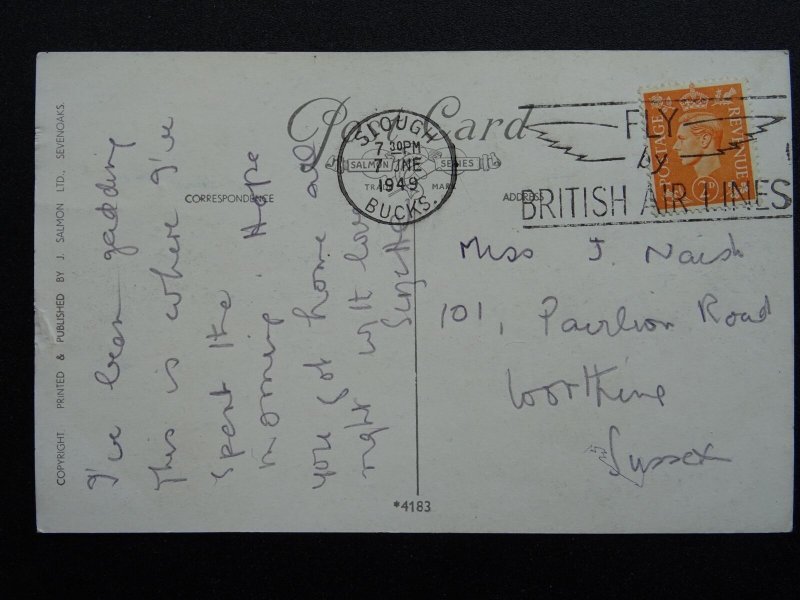 COPYRIGHT. PRINTED & PUBLISHED BY J. SALMON LTD., SEVENOAKS.
Post Card
SALMON SERIES
TRADE MARK
CORRESPONDENCE
ADDRESS
SLOUGH
7 30PM
7 JNE
1949
BUCKS.
FLY
by
BRITISH AIR LINES
POSTAGE
REVENUE
2D
I've been gadding
This is where I've
spent the
morning. Hope
you got home all
right with love
Miss J. Naish
101, Pavilion Road
Worthing
Sussex
*4183